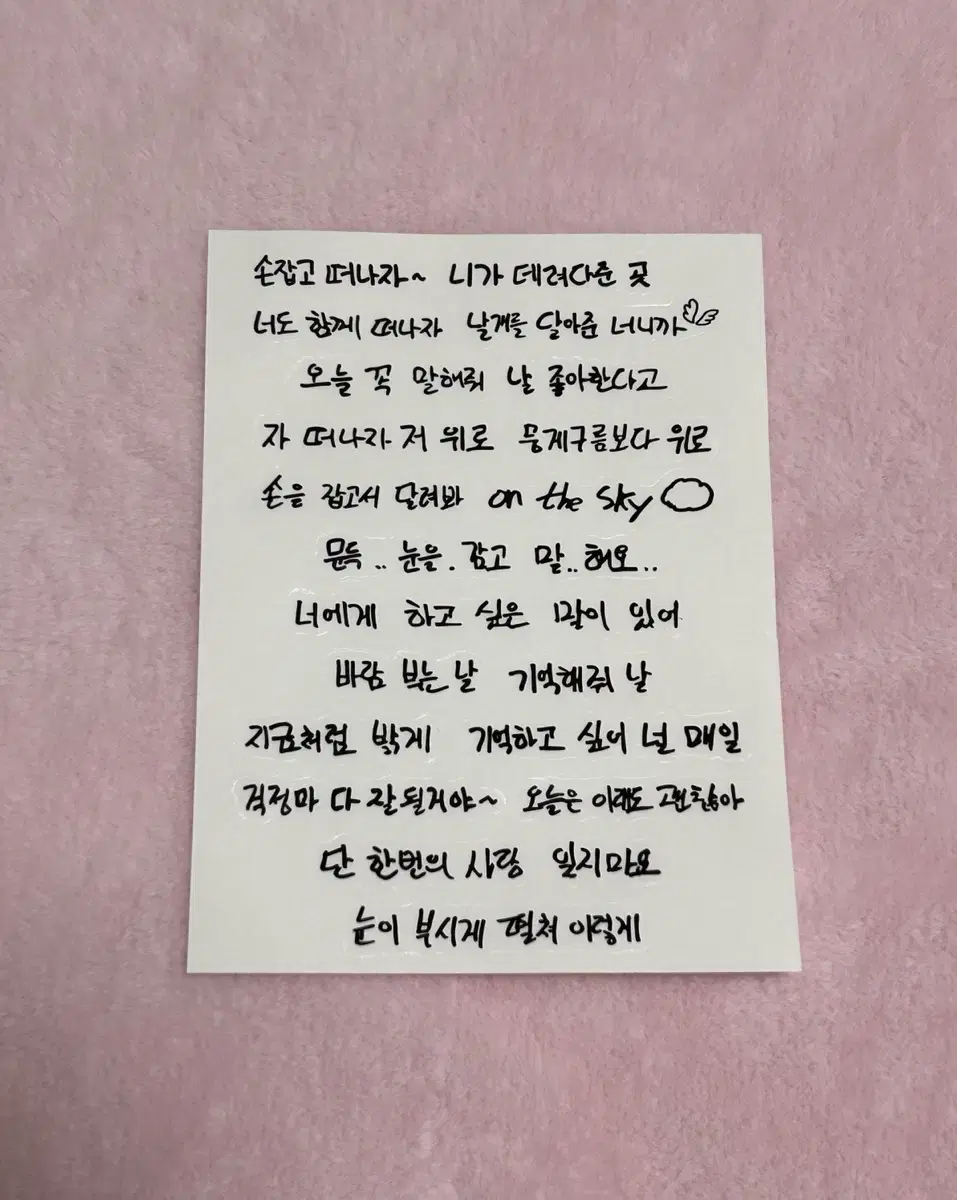 손잡고 떠나자~ 니가 데려다준 곳
너도 함께 떠나자 날개를 달아준 너니까
오늘 꼭 말해줘 날 좋아한다고
자 떠나자 저 위로 뭉게구름보다 위로
손을 잡고서 달려봐 on the sky
문득.. 눈을. 감고 말..해요..
너에게 하고 싶은 말이 있어
바람 부는 날 기억해줘 날
지금처럼 밝게 기억하고 싶어 널 매일
걱정마 다 잘될거야~ 오늘은 이래도 괜찮아
단 한번의 사랑 잊지마요
눈이 부시게 펼쳐 이렇게